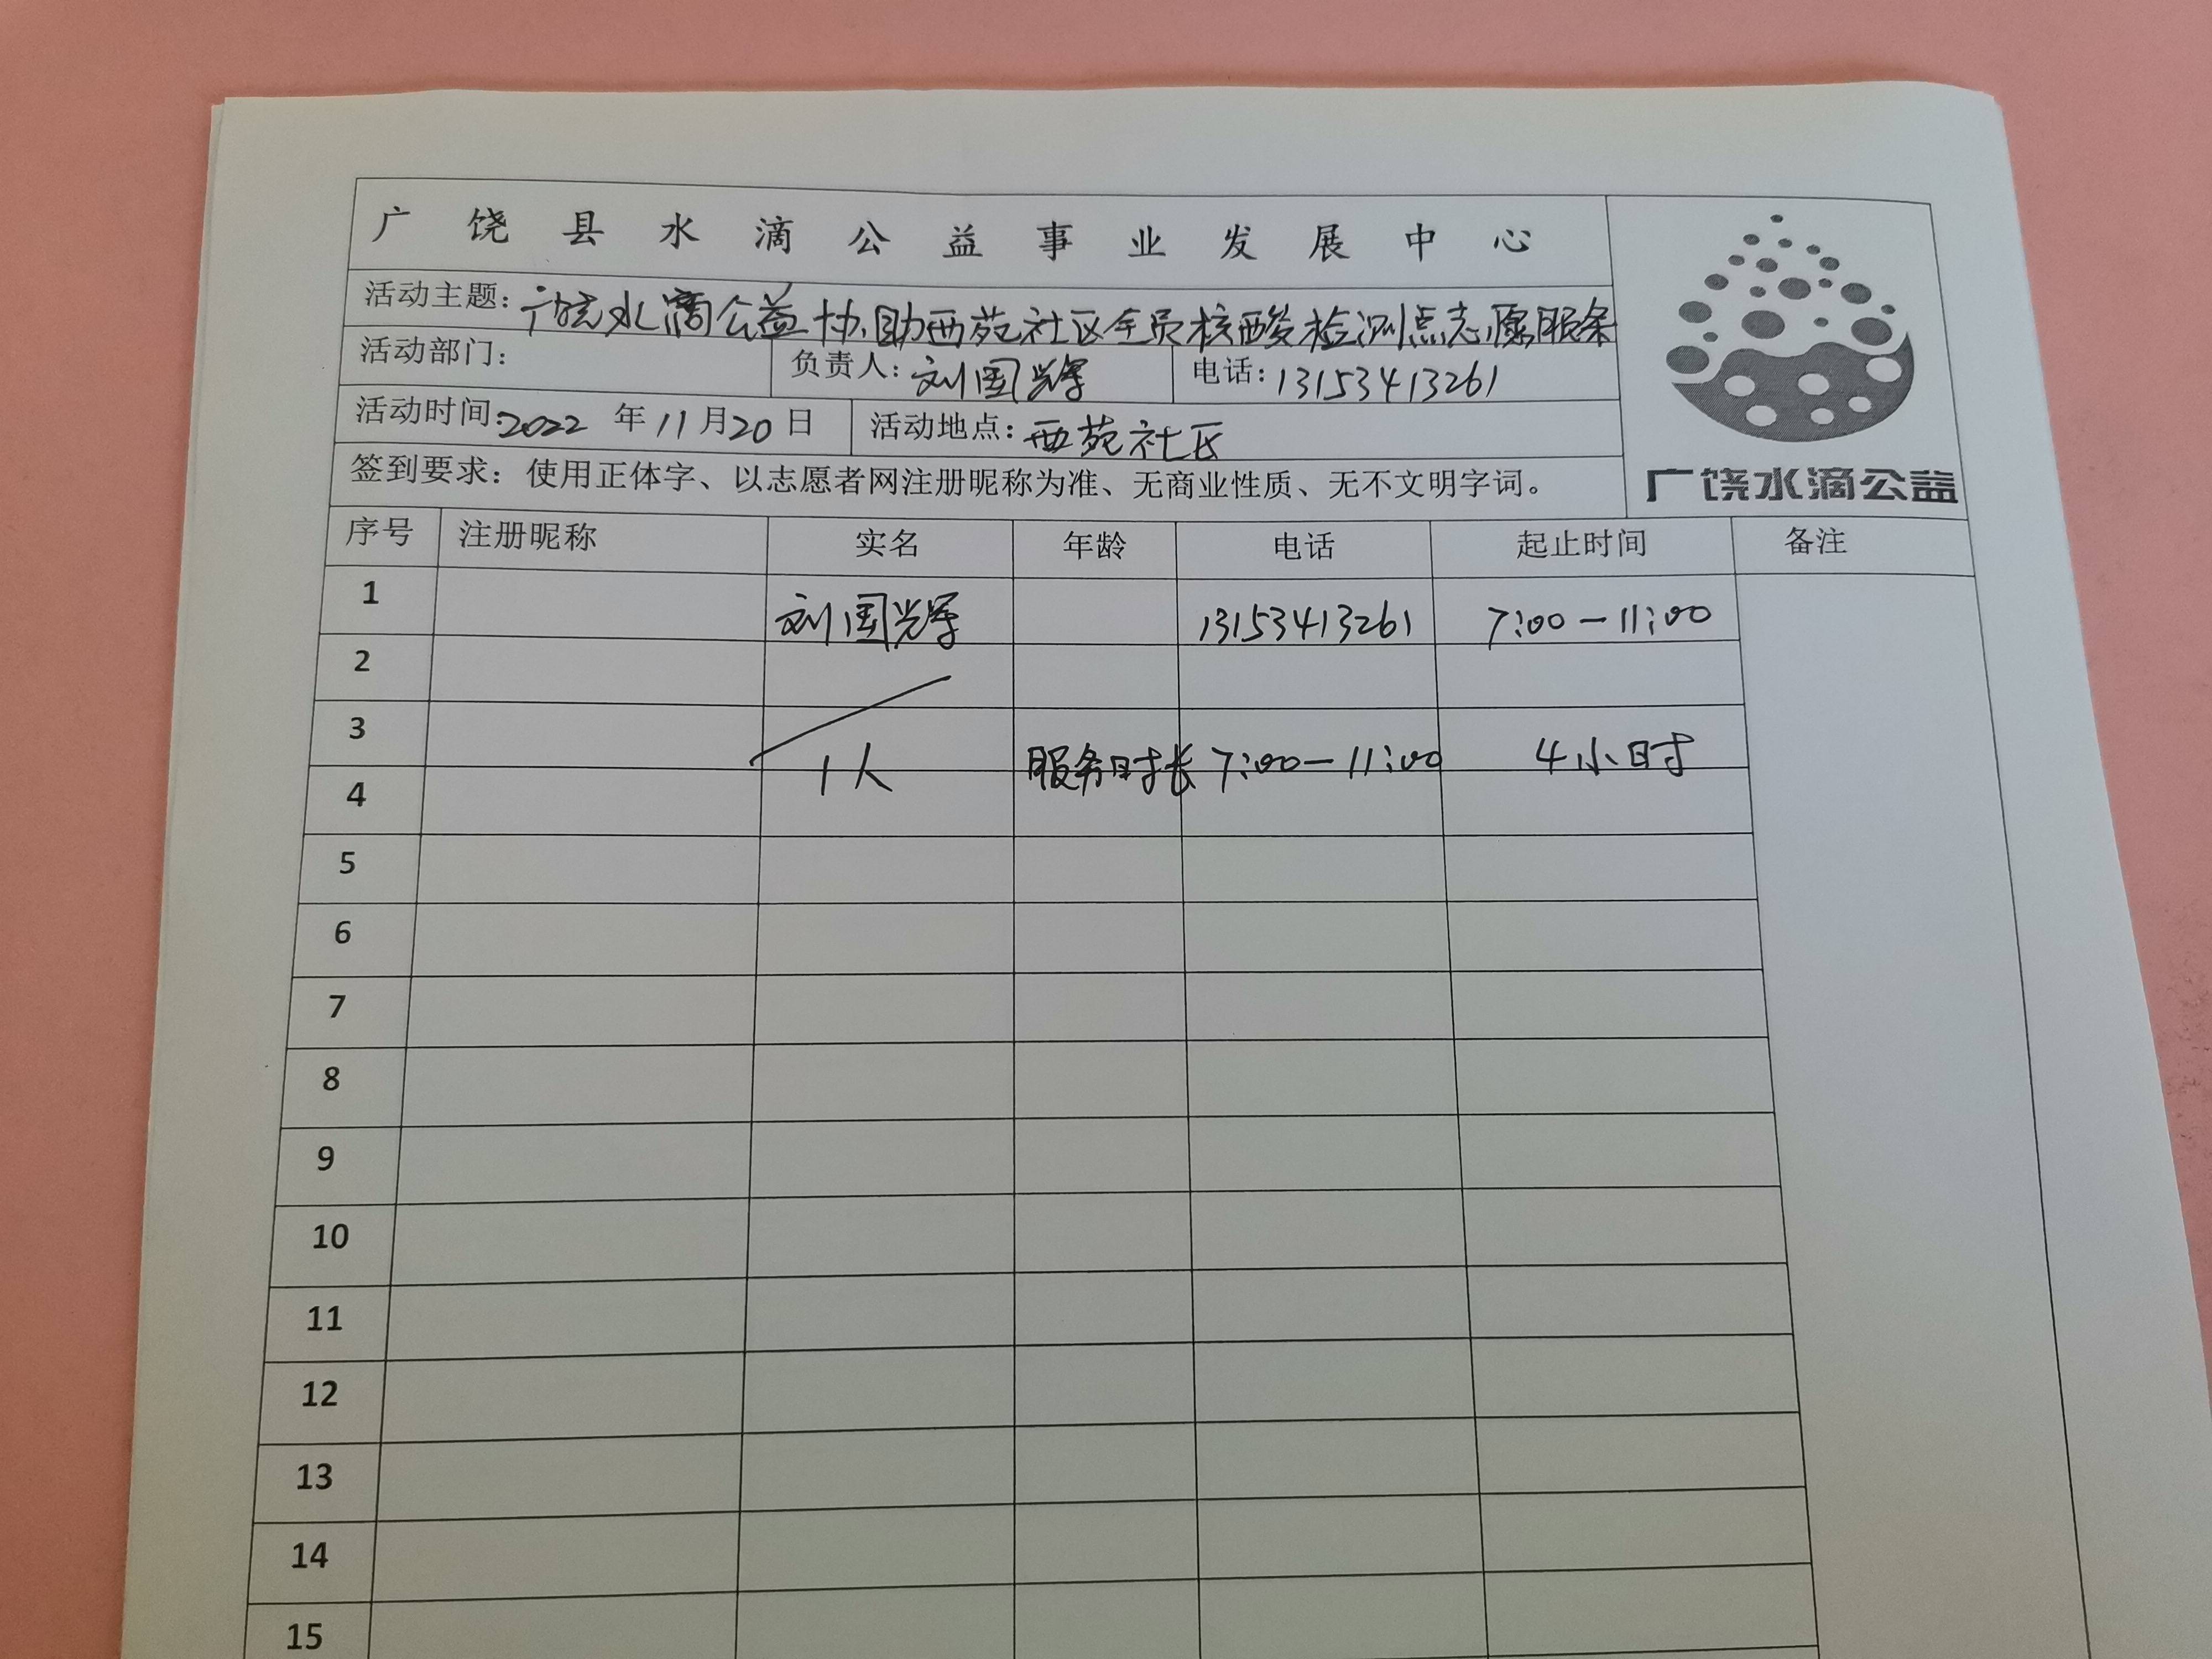 广饶县水滴公益事业发展中心
活动主题：广饶水滴公益协助西苑社区全员核酸检测点志愿服务
活动部门： 负责人：刘国辉 电话：13153413261
活动时间：2022 年 11 月 20 日 活动地点：西苑社区
签到要求：使用正体字、以志愿者网注册昵称为准、无商业性质、无不文明字词。
广饶水滴公益
序号 注册昵称 实名 年龄 电话 起止时间 备注
1 刘国辉 13153413261 7:00－11:00
2
3
1人 服务时长 7:00－11:00 4小时
4
5
6
7
8
9
10
11
12
13
14
15